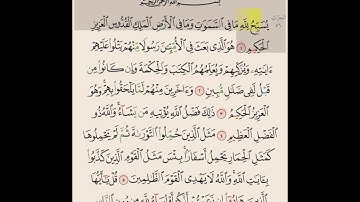 بِسْمِ اللَّهِ الرَّحْمَنِ الرَّحِيمِ
يُسَبِّحُ لِلَّهِ مَا فِي السَّمَوَتِ وَمَا فِي الْأَرْضِ الْمَلِكِ الْقُدُّوسِ الْعَزِيزِ
الْحَكِيمِ ١ هُوَ الَّذِي بَعَثَ فِي الْأُمِّيِّنَ رَسُولًا مِنْهُمْ يَتْلُوا عَلَيْهِمْ
ءَايَتِهِ وَيُزَكِّيهِمْ وَيُعَلِّمُهُمُ الْكِتَبَ وَالْحِكْمَةَ وَإِن كَانُوا مِن
قَبْلُ لَفِي ضَلَلٍ مُّبِينٍ ٢ وَءَاخَرِينَ مِنْهُمْ لَمَّا يَلْحَقُوا بِهِمْ وَهُوَ
الْعَزِيزُ الْحَكِيمُ ٣ ذَلِكَ فَضْلُ اللَّهِ يُؤْتِيهِ مَن يَشَاءُ وَاللَّهُ ذُو
الْفَضْلِ الْعَظِيمِ ٤ مَثَلُ الَّذِينَ حُمِّلُوا التَّوْرَىةَ ثُمَّ لَمْ يَحْمِلُوهَا
كَمَثَلِ الْحِمَارِ يَحْمِلُ أَسْفَارًا بِئْسَ مَثَلُ الْقَوْمِ الَّذِينَ كَذَّبُوا
بِـَٔايَتِ اللَّهِ وَاللَّهُ لَا يَهْدِي الْقَوْمَ الظَّلِمِينَ ٥ قُلْ يَأَيُّهَا